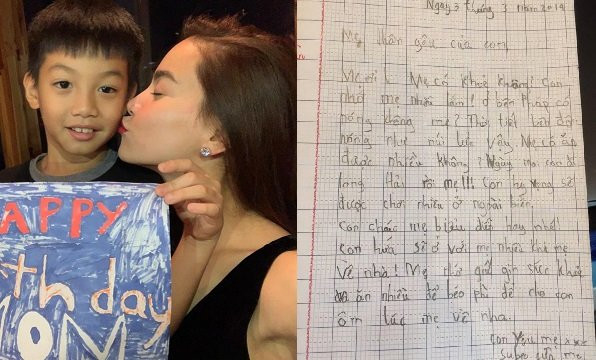 HAPPY
th day
MOM
Ngày 3 tháng 3 năm 2019
Mẹ thân yêu của con,
Mẹ ơi! Mẹ có khoẻ không? Con
nhớ mẹ nhiều lắm! Ở bên Pháp có
nóng không mẹ? Thời tiết bắt đầu
nóng như núi lửa vậy. Mẹ có ăn
được nhiều không? Ngày mai con đi
long Hải rồi mẹ!!! Con hy vọng sẽ
được chơi nhiều ở ngoài biển.
Con chúc mẹ biểu diễn hay nhé!
Con hứa sẽ ở với mẹ nhiều khi mẹ
về nhà! Mẹ nhớ giữ gìn sức khoẻ
và ăn nhiều để béo phì để cho con
ôm lúc mẹ về nha.
Con yêu mẹ